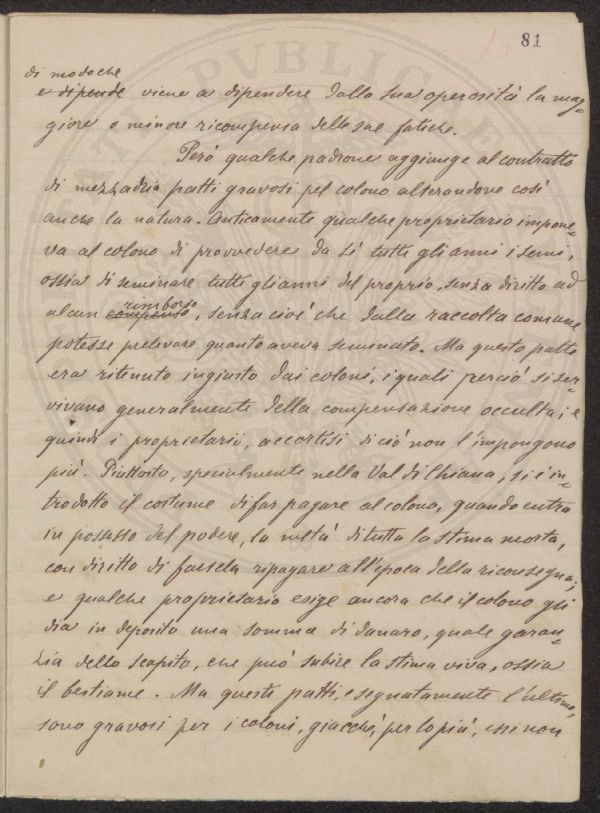 81
di modoche
e dipende viene a dipendere dalla sua operosità la mag-
giore o minore ricompensa delle sue fatiche.
Però qualche padrone aggiunge al contratto
di mezzadria patti gravosi pel colono alterandone così
anche la natura. Anticamente qualche proprietario impone-
va al colono di provvedere da sè tutti gli anni i semi,
ossia di seminare tutti gli anni del proprio, senza diritto ad
rimborso
alcun compenso, senza cioè che dalla raccolta comune
potesse prelevare quanto aveva seminato. Ma questo patto
era ritenuto ingiusto dai coloni, i quali perciò si ser-
vivano generalmente della compensazione occulta; e
quindi i proprietarii, accortisi di ciò non l'impongono
più. Piuttosto, specialmente nella Val di Chiana, si è in-
trodotto il costume di far pagare al colono, quando entra
in possesso del podere, la metà di tutta la stima morta,
con diritto di farsela ripagare all'epoca della riconsegna;
e qualche proprietario esige ancora che il colono gli
dia in deposito una somma di danaro, quale garan-
zia dello scapito, che può subire la stima viva, ossia
il bestiame. Ma questi patti, e segnatamente l'ultimo,
sono gravosi per i coloni, giacchè, per lo più, essi non